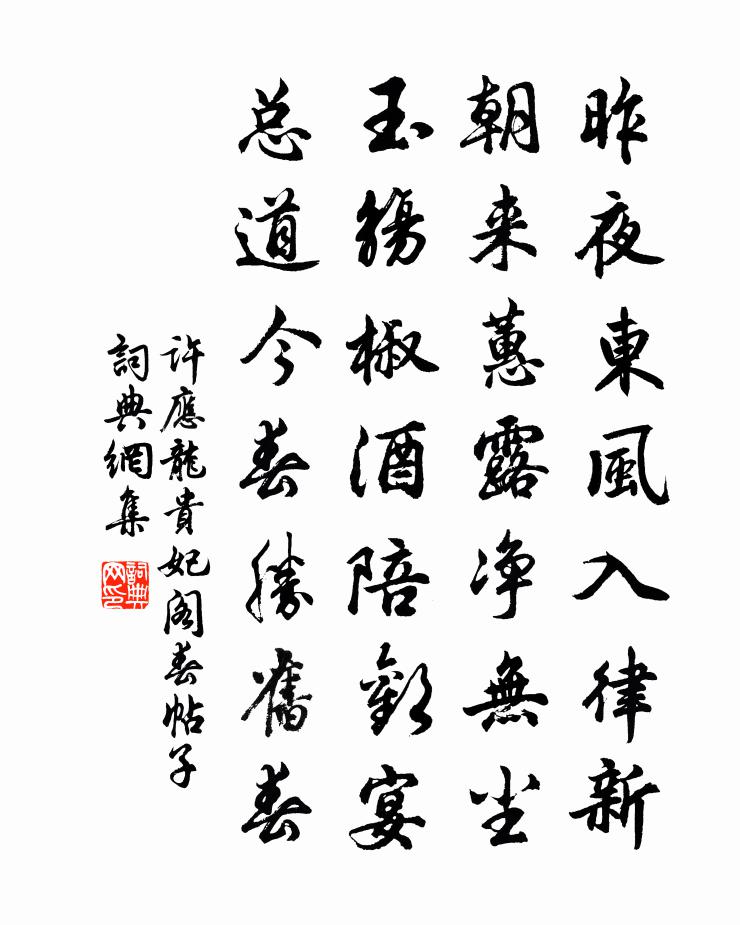 昨夜東風入律新
朝来蕙露净無尘
玉觴椒酒陪歡宴
总道今春勝舊春
許應龍貴妃阁春帖子
詞典網集
詞典网印